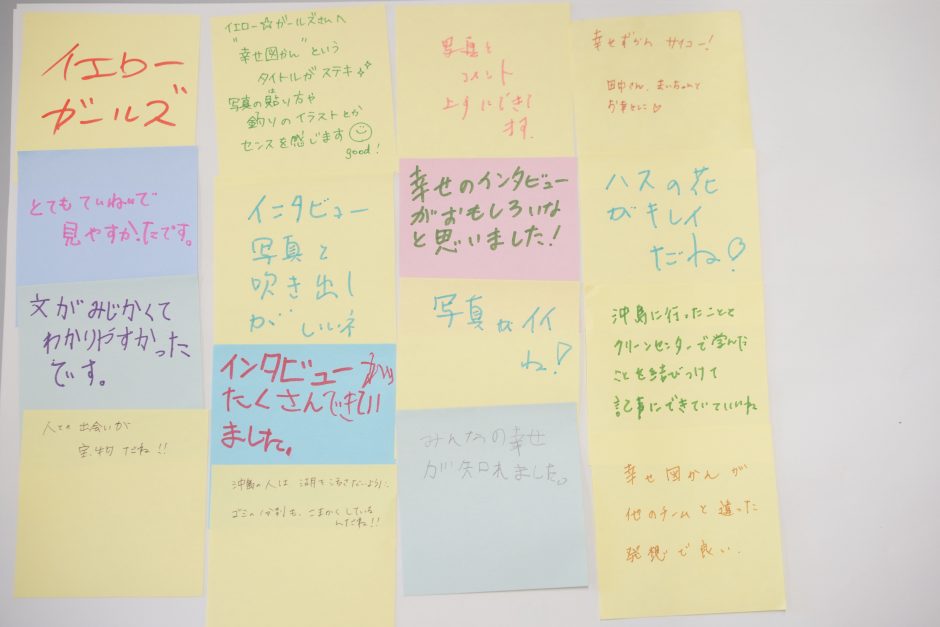 イエロー
ガールズ
とてもていねいで
見やすかったです。
文がみじかくて
わかりやすかった
です。
人との出会いが
宝物だね!!
イエロー☆ガールズさんへ
"幸せ図かん"という
タイトルがステキ
写真の貼り方や
釣りのイラストとか
センスを感じます
good!
インタビュー
写真と
吹き出し
がいいネ
インタビューが
たくさんできてい
ました。
沖島の人は 湖を汚さないように
ゴミの分別も、こまかくしている
んだね!!
写真と
コメント
上手にできて
ます.
幸せのインタビュー
がおもしろいな
と思いました!
写真がイイ
ね!
みんなの幸せ
が知れました。
幸せずかん サイコー!
田中さん、まいちゃんと
お幸せに♡
ハスの花
がキレイ
だね!
沖島に行ったことと
クリーンセンターで学んだ
ことを結びつけて
記事にできていていいね
幸せ図かんが
他のチームと違った
発想で良い.